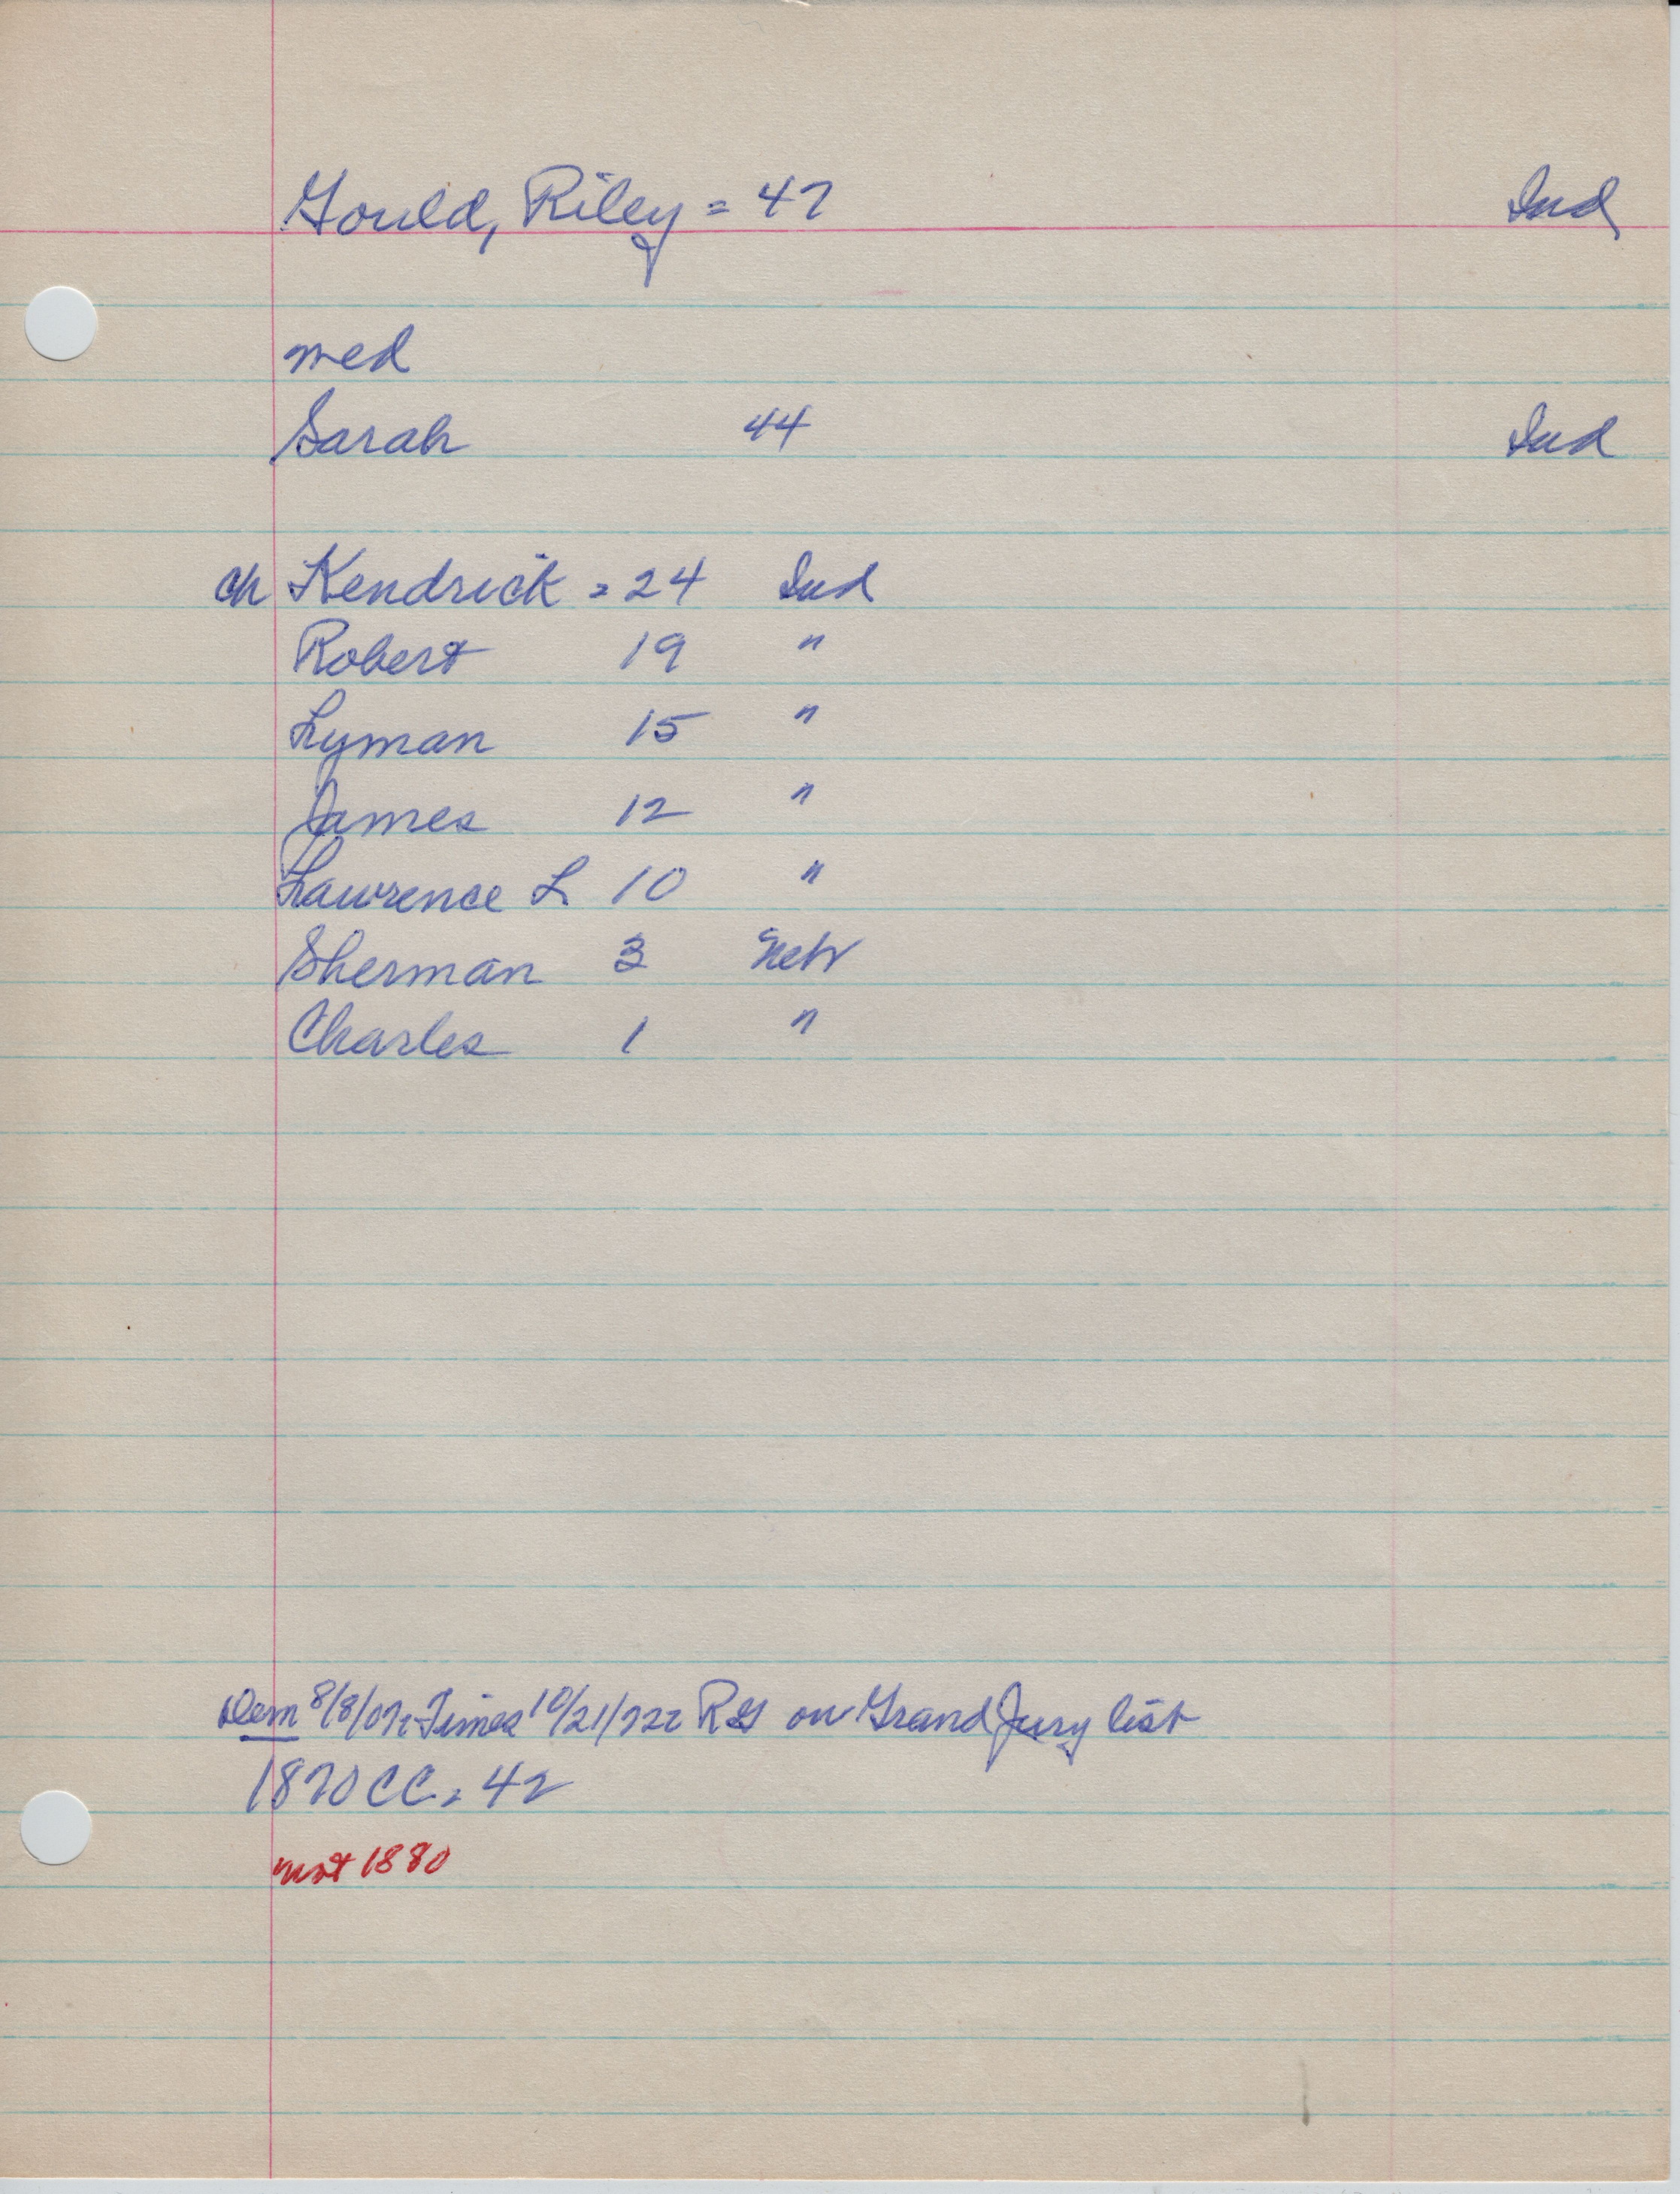 Gould, Riley = 47 Ind
med
Sarah 44 Ind
ch Kendrick = 24 Ind
Robert 19 "
Lyman 15 "
James 12 "
Lawrence L 10 "
Sherman 3 Neb
Charles 1 "
Dem 8/8/072 Times 10/21/722 RG on Grand Jury list
1870 CC = 42
not 1880